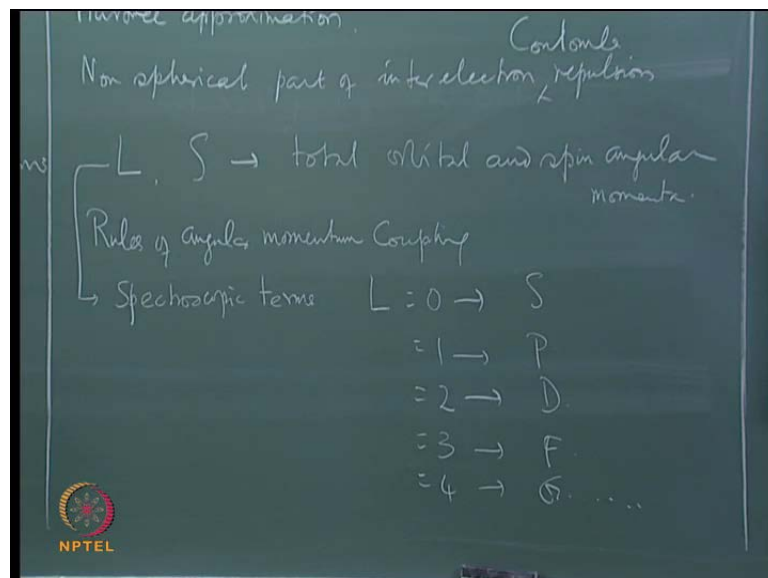 approximation.
Coulomb
Non spherical part of inter electron repulsion
L, S → total orbital and spin angular
momenta.
Rules of angular momentum Coupling
Spectroscopic terms L = 0 → S
= 1 → P
= 2 → D.
= 3 → F.
= 4 → G.....
NPTEL